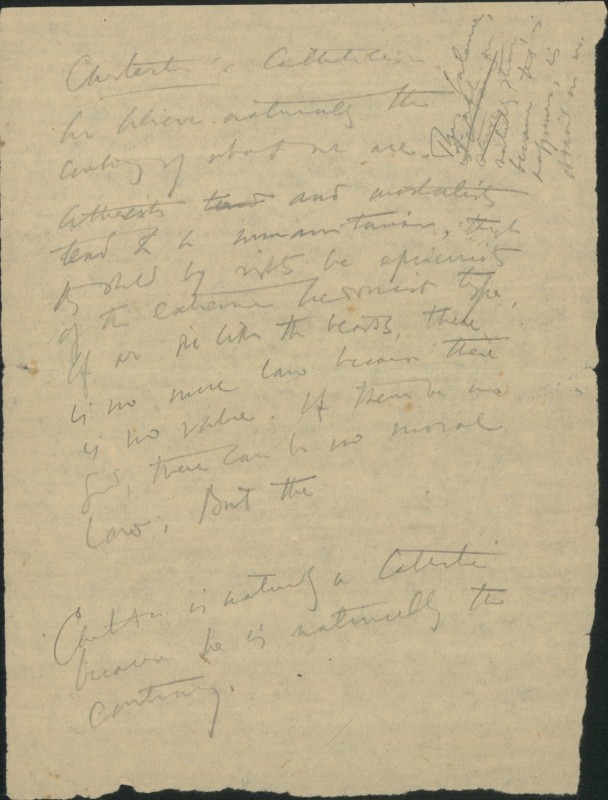 Chesterton & Catholicism.
We believe naturally the
contrary of what we are.
Atheists and mortalists
tend to be humanitarian, though
they should by rights be epicurists
of the extreme hedonist type.
If we die like the beasts, there
is no more law because there
is no value. If there be no
God, there can be no moral
Law. But the
This balance,
because
is
on us.
Chesterton is naturally a Catholic
because he is naturally the
contrary.